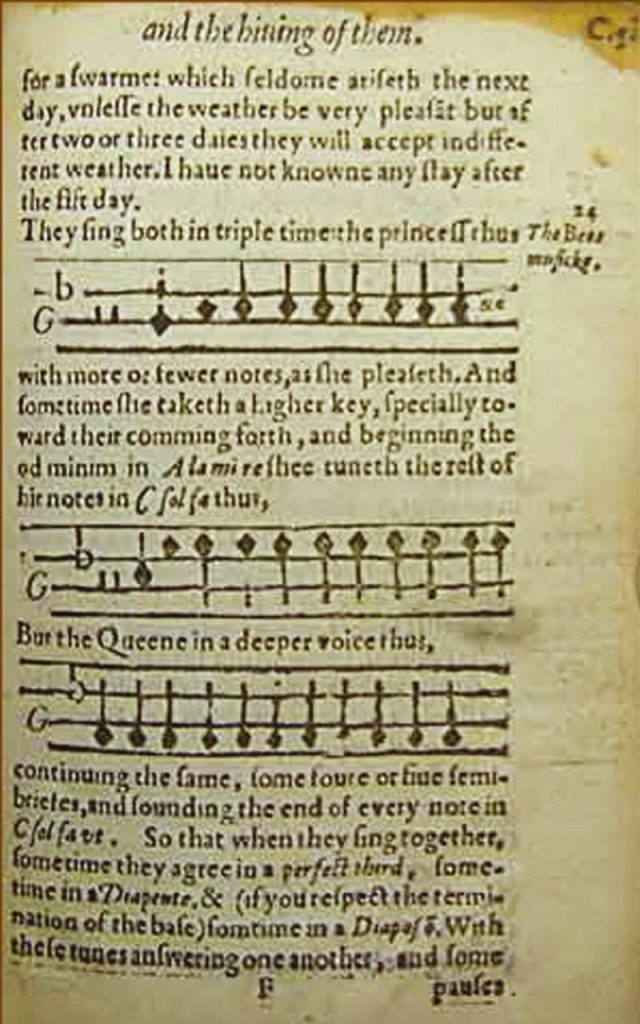 and the hiuing of them.
for a ſwarme: which ſeldome ariſeth the next
day, vnleſſe the weather be very pleaſāt but af
ter two or three daies they will accept indiffe-
rent weather. I haue not knowne any ſtay after
the fift day.
They ſing both in triple time: the princeſſ thus
24
The Bees
muſicke.
b
G
&c
with more or fewer notes, as ſhe pleaſeth. And
ſometime ſhe taketh a higher key, ſpecially to-
ward their comming forth, and beginning the
od minim in A lamire ſhee tuneth the reſt of
hir notes in C ſol fa thus,
b
G
But the Queene in a deeper voice thus,
b
G
continuing the ſame, ſome foure or fiue ſemi-
briefes, and ſounding the end of every note in
C ſol fa ut. So that when they ſing together,
ſometime they agree in a perfect third, ſome-
time in a Diapente, & (if you reſpect the termi-
nation of the baſe) ſomtime in a Diapaſō. With
theſe tunes anſwering one another, and ſome
F
pauſes